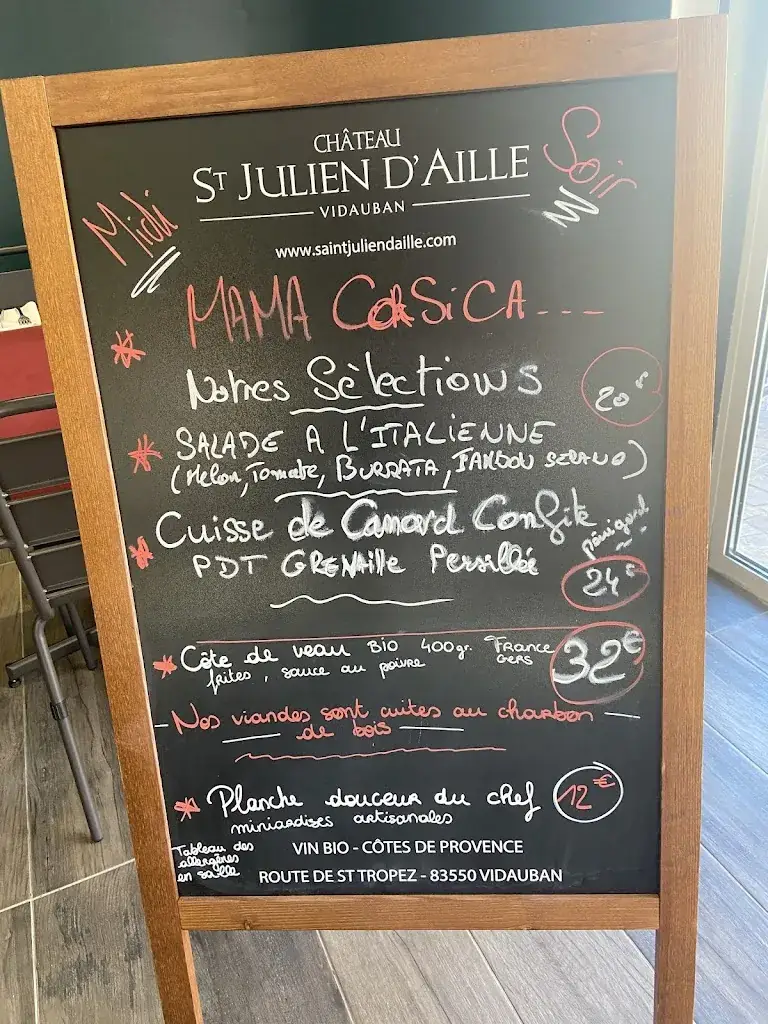 CHÂTEAU
ST JULIEN D'AILLE
VIDAUBAN
www.saintjuliendaille.com
Midi
Soir
MAMA CORSICA----
Notres Sèlections
20€
SALADE A L'ITALIENNE
(Melon, Tomate, BURRATA, JAMBON SERANO)
Cuisse de Canard Confite
périgord
PDT GRENAille Persillée
24€
Côte de veau BIO 400gr. FRANCE
GERS
frites, sauce au poivre
32€
- Nos viandes sont cuites au charbon -
de bois
Planche douceur du chef
12€
miniardises artisanales
Tableau des
allergènes
en salle
VIN BIO - CÔTES DE PROVENCE
ROUTE DE ST TROPEZ - 83550 VIDAUBAN